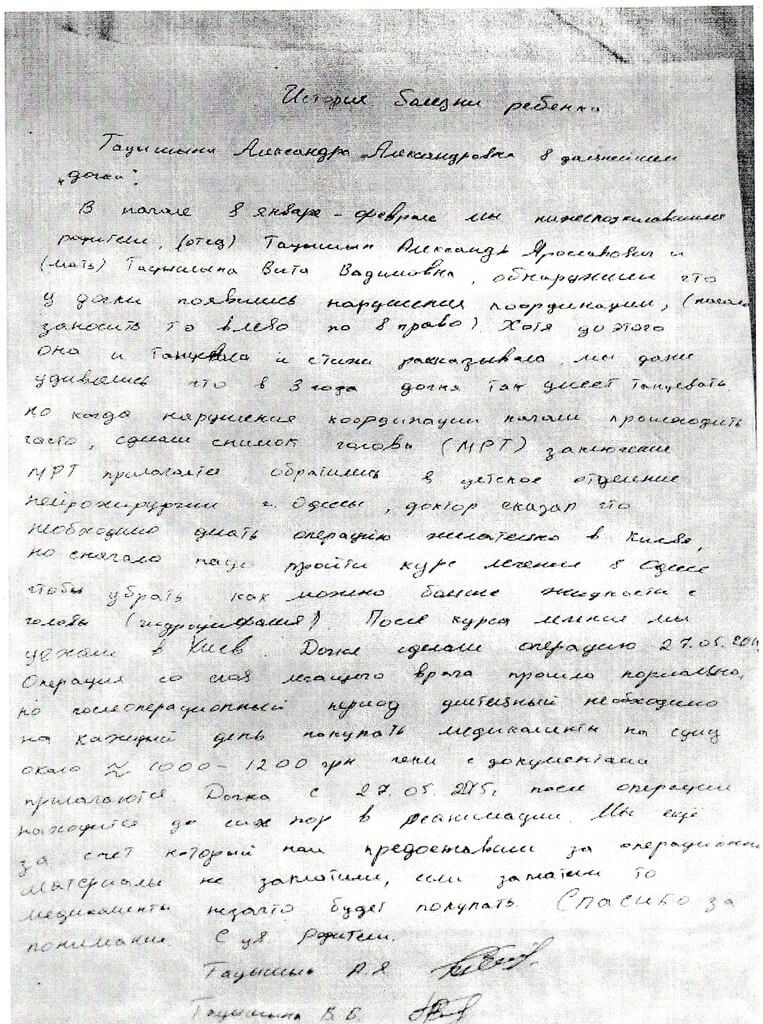 История болезни ребенка
Тацышина Александра Александровна в дальнейшем
"дочка".
В начале в январе - феврале мы нижеподписавшиеся
родители, (отец) Тацышын Александр Ярославович и
(мать) Тацышына Вита Вадимовна, обнаружили что
у дочки появились нарушения координации, (начало
заносить то влево то в право) Хотя до этого
она и танцевала и стихи рассказывала, мы даже
удивлялись что в 3 года дочка так умеет танцевать
но когда нарушения координации начали происходить
часто, сделали снимок головы (МРТ) заключение
МРТ прилагается, обратились в детское отделение
нейрохирургии г. Одессы, доктор сказал что
необходимо делать операцию желательно в Киеве,
но сначало надо пройти курс лечения в Одессе
чтобы убрать как можно больше жидкости с
головы (гидроцефалия). После курса лечения мы
уехали в Киев. Дочке сделали операцию 27.05.
Операция со слов лечащего врача прошло нормально,
но послеоперационный период длительный необходимо
на каждый день покупать медикаменты на суму
около ≈ 1000 - 1200 грн чеки с документами
прилагаются. Дочка с 27.05.2015г после операции
находится до сих пор в реанимации. Мы ещё
за счет который нам предоставили за операционные
материалы не заплатили, если заплатим то
медикаменты незачто будет покупать. Спасибо за
понимание. С ув Родители.
Тацышын А.Я.
Тацышина В.В.